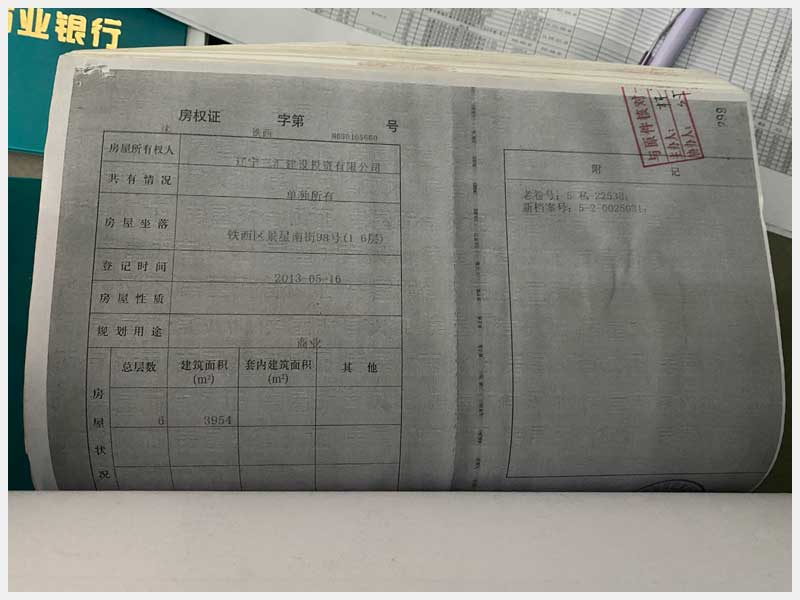 业银行
房权证 字第 号
沈 铁西 N060105660
房屋所有权人 辽宁三汇建设投资有限公司
共有情况 单独所有
房屋坐落 铁西区景星南街98号(1-6层)
登记时间 2013-05-16
房屋性质
规划用途 商业
房屋状况
总层数 建筑面积(m²) 套内建筑面积(m²) 其他
6 3954
附记
老卷号：5-私-22538;
新档案号：5-2-0025031;
与原件核对
主办人：
协办人：
299